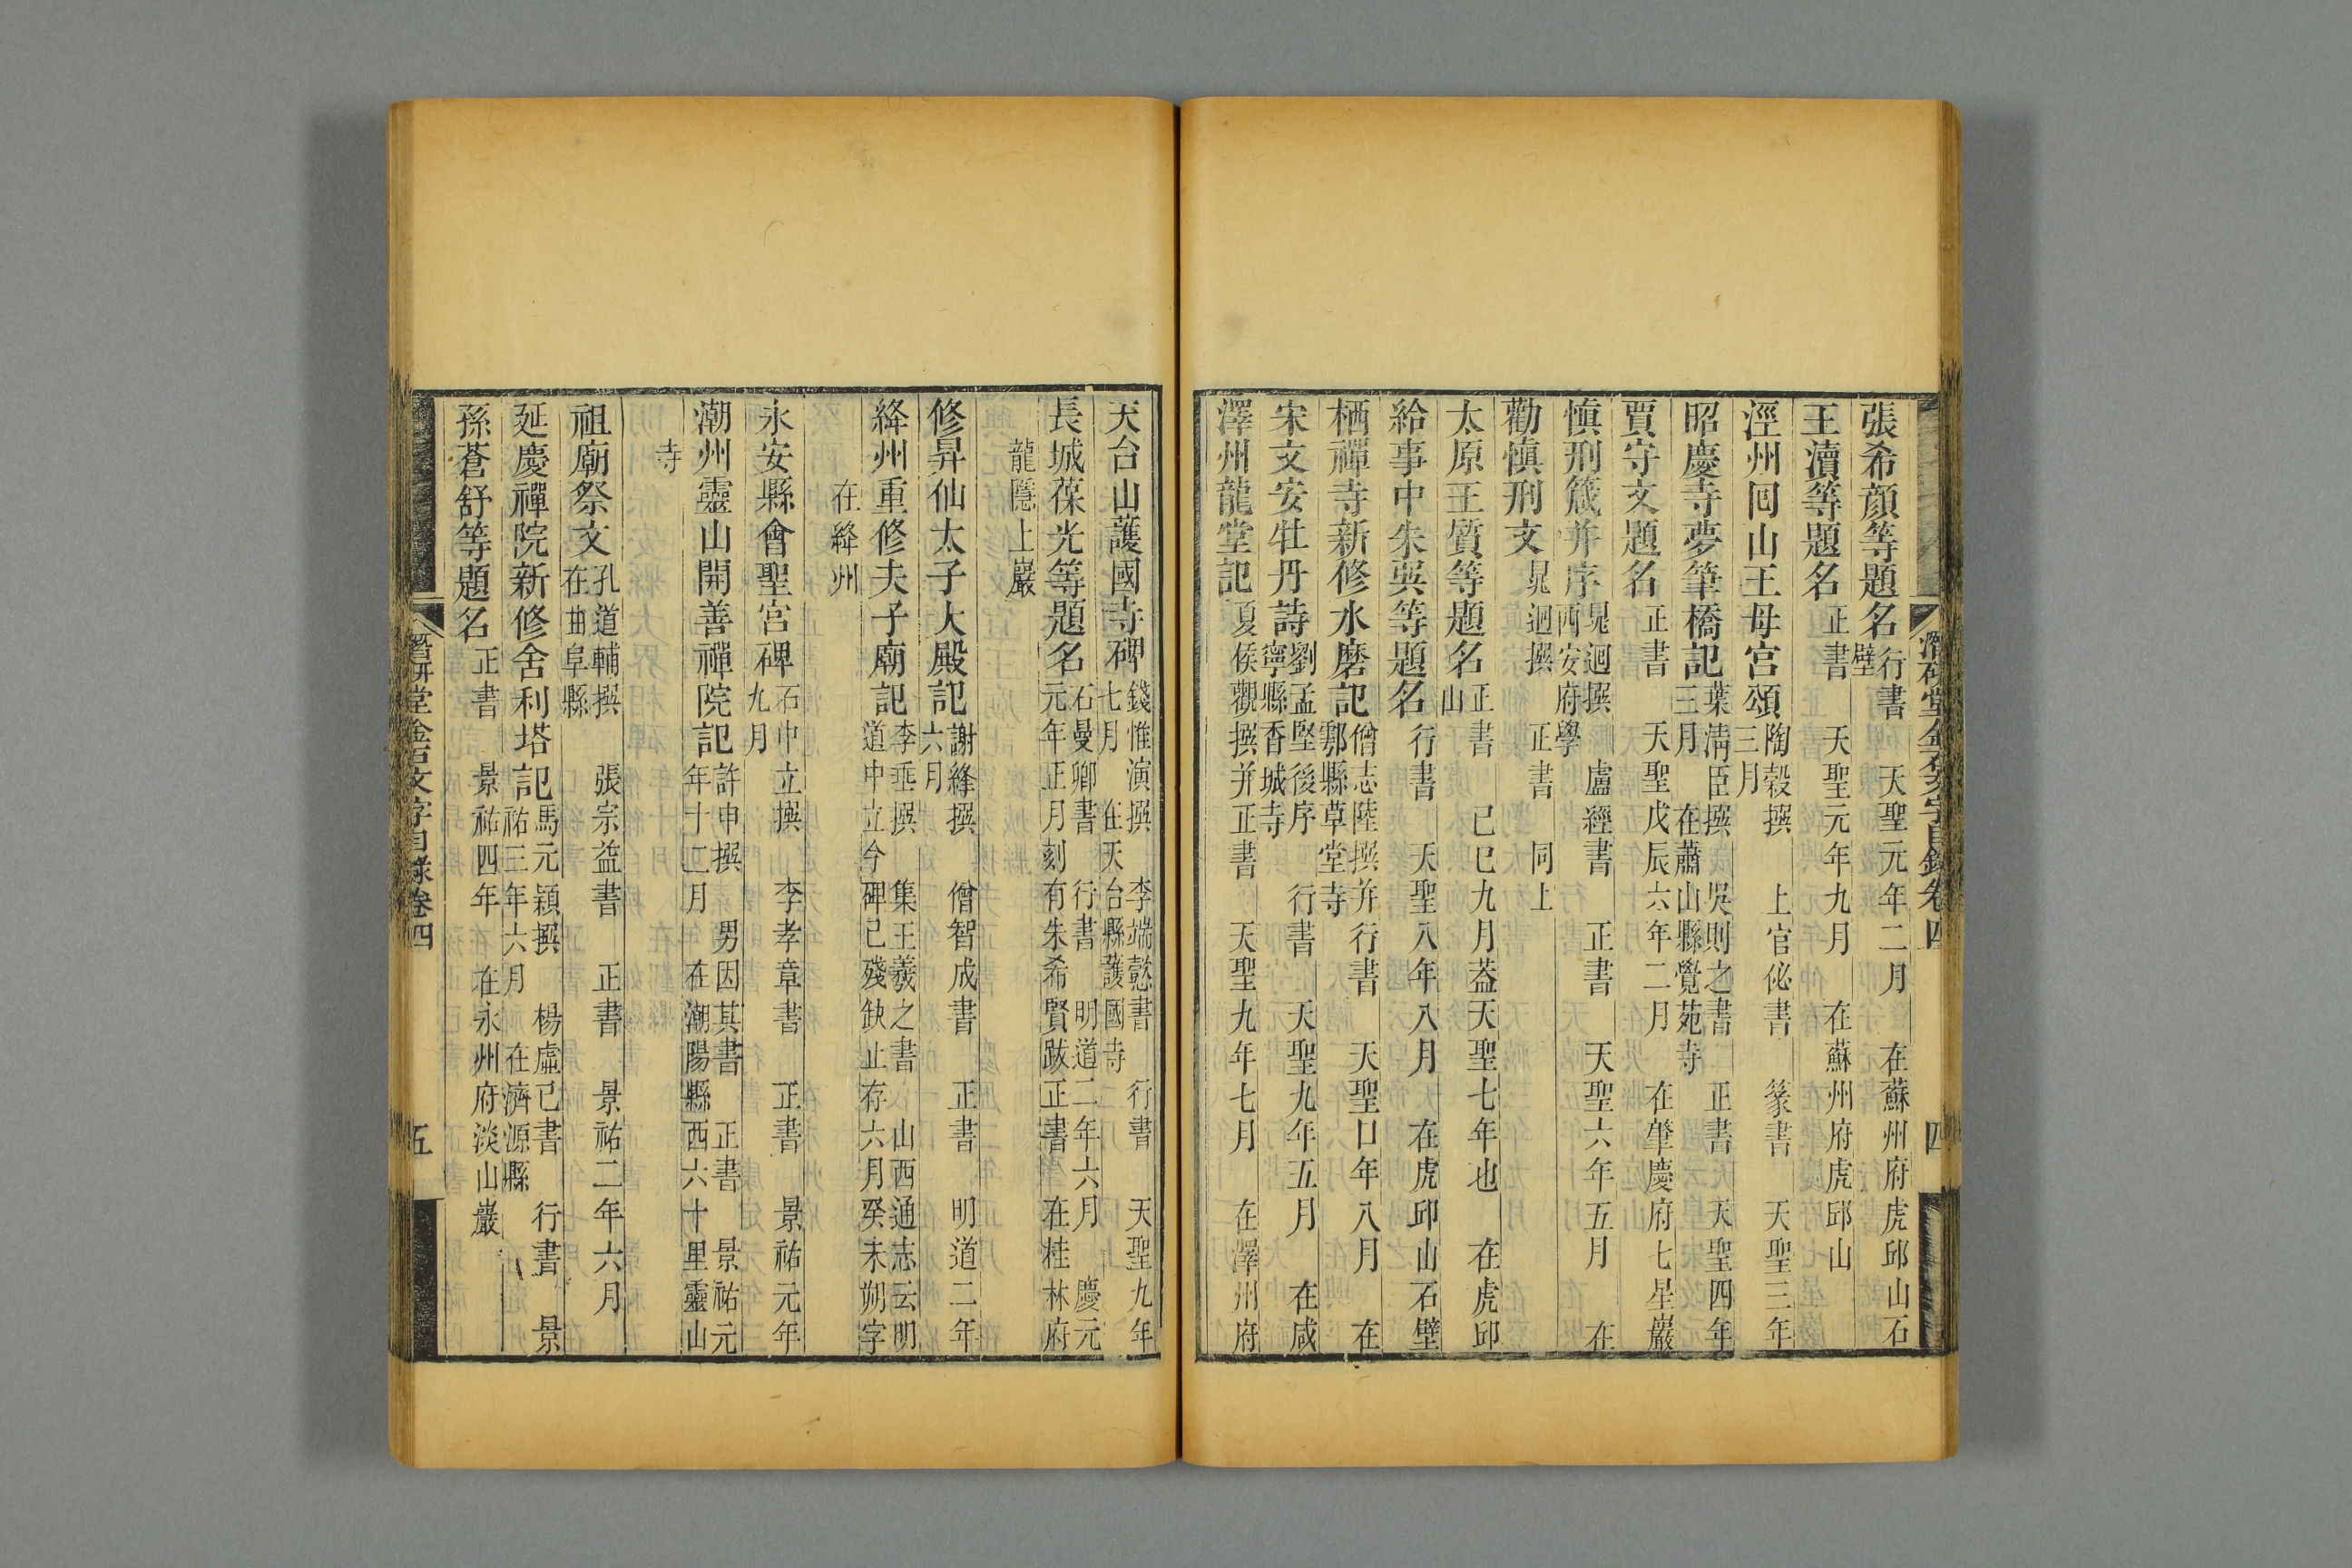 潛研堂金石文字目錄卷四 四
張希顏等題名 行書 天聖元年二月 在蘇州府虎邱山石壁
王瀆等題名 正書 天聖元年九月 在蘇州府虎邱山
涇州回山王母宮頌 陶穀撰 上官佖書 篆書 天聖三年三月
昭慶寺夢筆橋記 葉清臣撰 吳則之書 正書 天聖四年三月 在蕭山縣覺苑寺
賈守文題名 正書 天聖戊辰六年二月 在肇慶府七星巖
慎刑箴并序 晁迥撰 盧經書 正書 天聖六年五月 在西安府學
勸慎刑文 晁迥撰 正書 同上
太原王質等題名 正書 己巳九月葢天聖七年也 在虎邱山
給事中朱巽等題名 行書 天聖八年八月 在虎邱山石壁
栖禪寺新修水磨記 僧志陸撰并行書 天聖口年八月 在鄠縣草堂寺
宋文安牡丹詩 劉孟堅後序 行書 天聖九年五月 在咸寧縣香城寺
澤州龍堂記 夏侯觀撰并正書 天聖九年七月 在澤州府
天台山護國寺碑 錢惟演撰 李端懿書 行書 天聖九年七月 在天台縣護國寺
長城葆光等題名 石曼卿書 行書 明道二年六月 慶元元年正月刻 有朱希賢跋正書 在桂林府
龍隱上巖
修昇仙太子大殿記 謝絳撰 僧智成書 正書 明道二年六月
絳州重修夫子廟記 李垂撰 集王羲之書 山西通志云明道中立今碑已殘缺止存六月癸未朔字
在絳州
永安縣會聖宮碑 石中立撰 李孝章書 正書 景祐元年九月
潮州靈山開善禪院記 許申撰 男因其書 正書 景祐元年十二月 在潮陽縣西六十里靈山
寺
祖廟祭文 孔道輔撰 張宗益書 正書 景祐二年六月 在曲阜縣
延慶禪院新修舍利塔記 馬元穎撰 楊虛己書 行書 景祐三年六月 在濟源縣
孫蒼舒等題名 正書 景祐四年 在永州府淡山巖
潛研堂金石文字目錄卷四 五